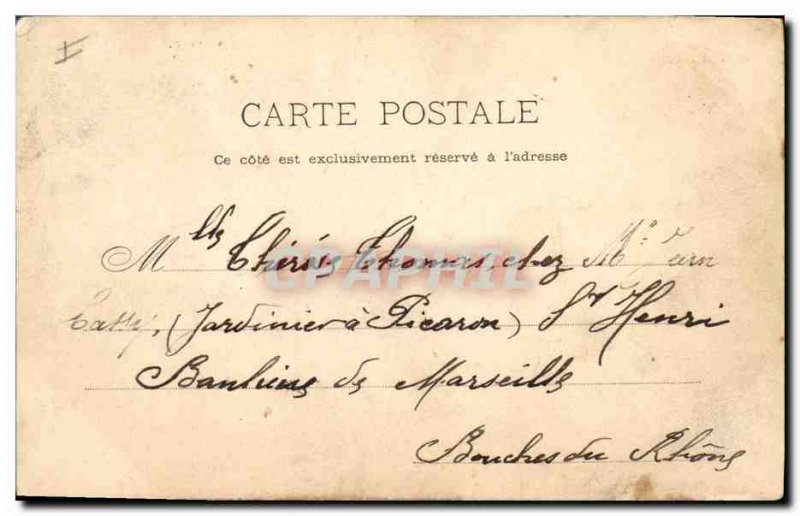 CARTE POSTALE
Ce côté est exclusivement réservé à l'adresse
Mlle Thérèse Thomas chez Mr
(Jardinier à Picaron) St Henri
Banlieue de Marseille
Bouches du Rhône
CPAPHIL